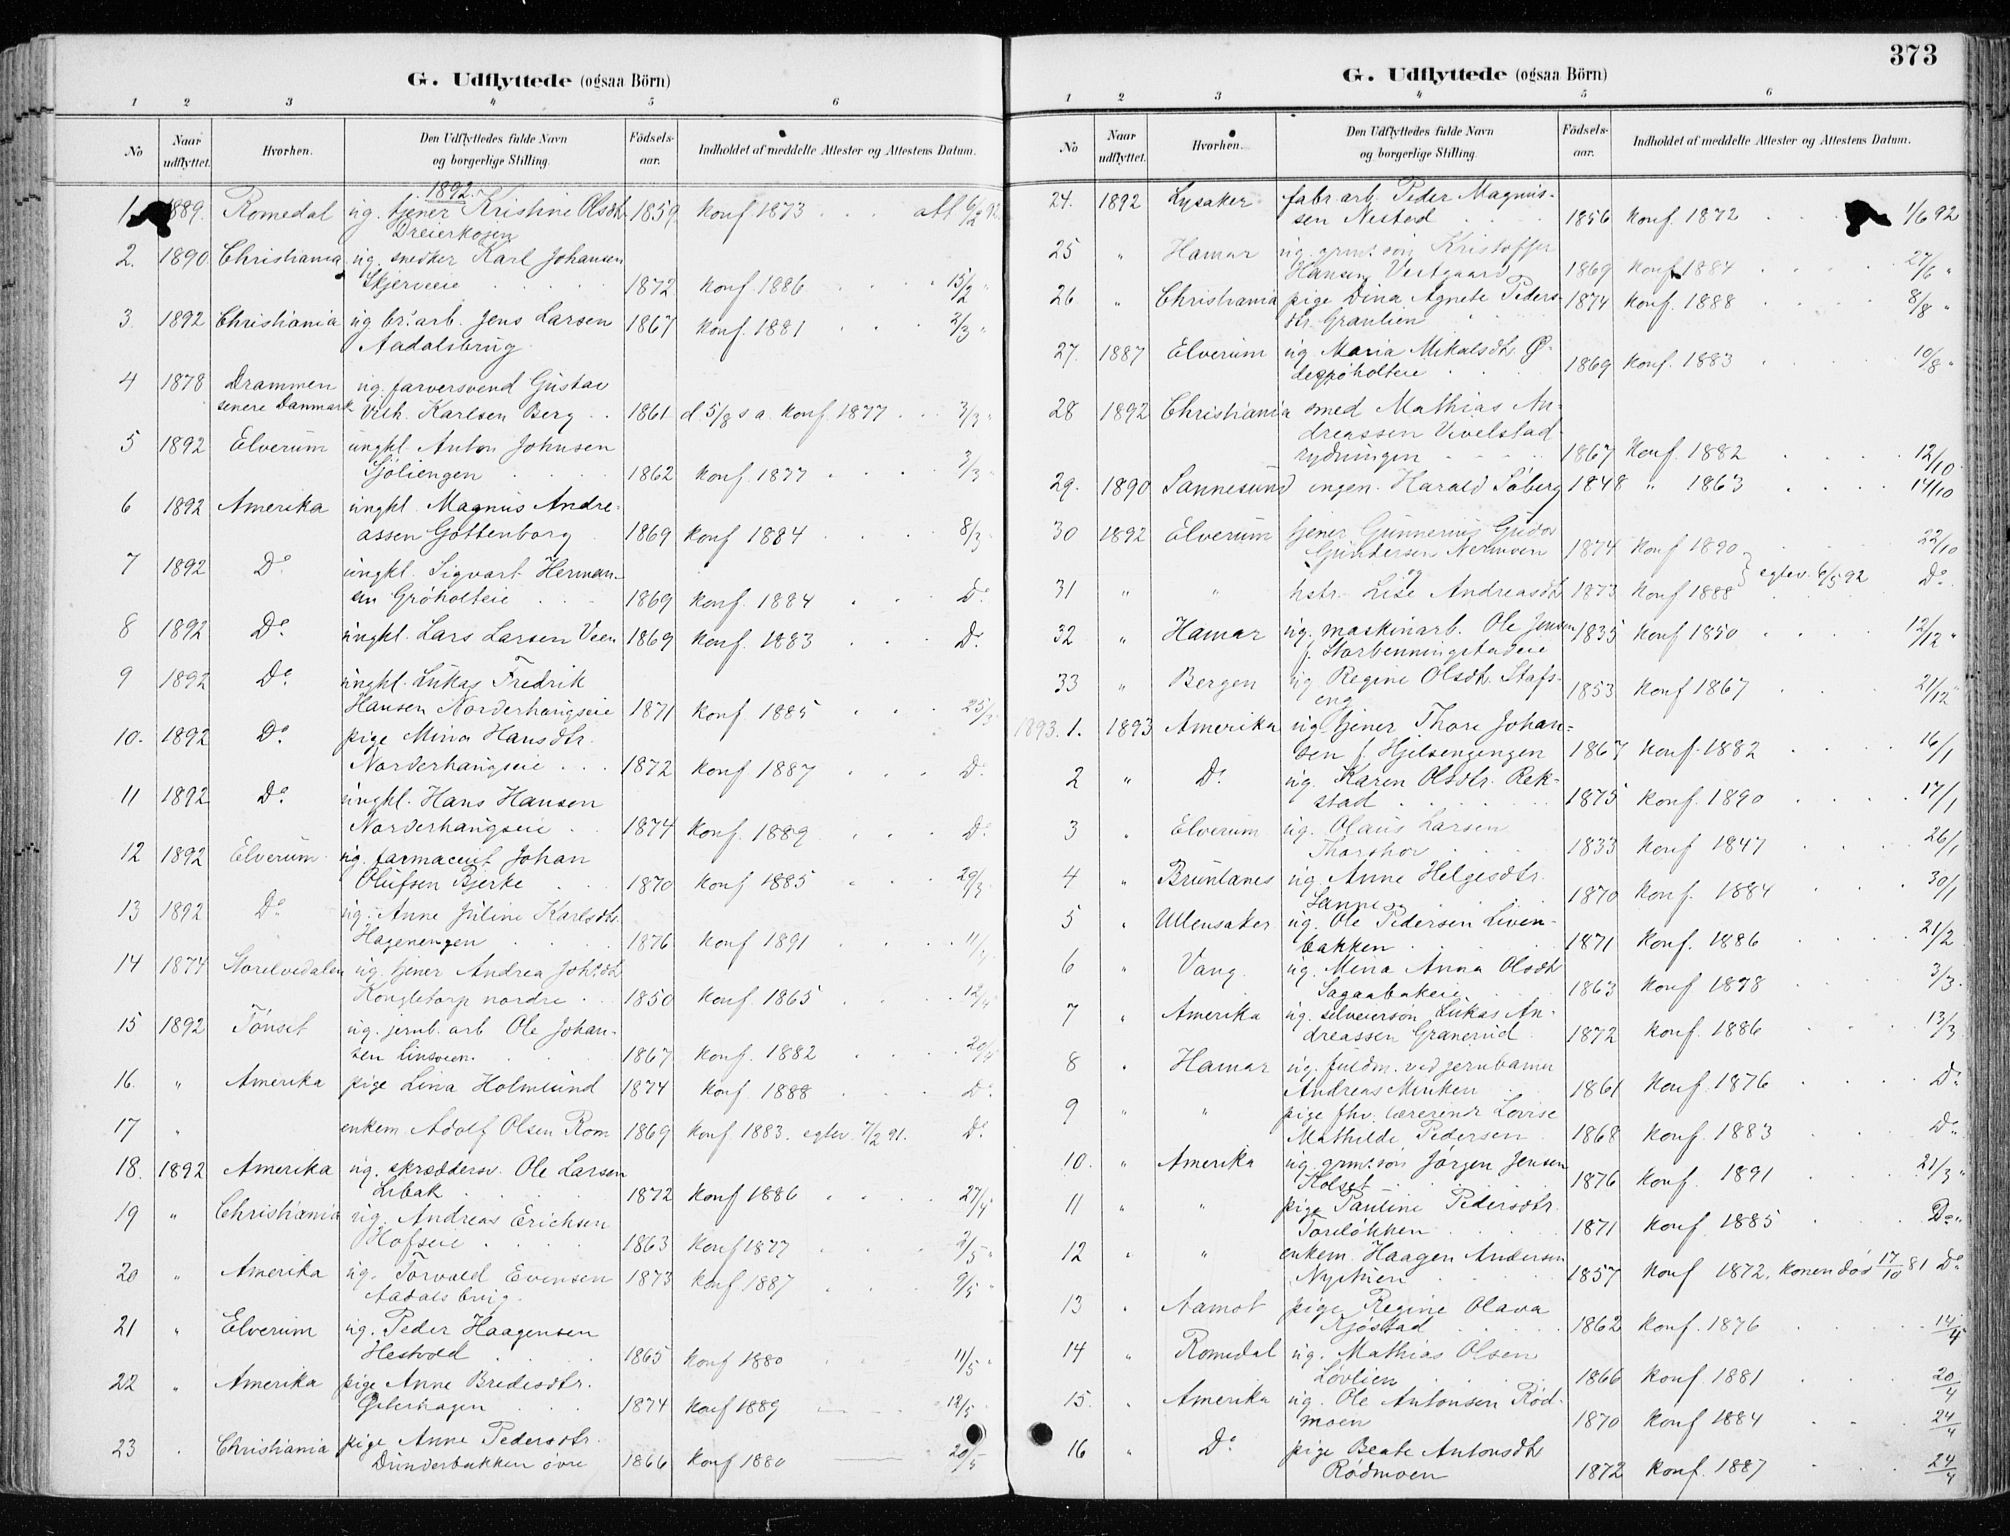 G. Udflyttede (ogsaa Börn)
1 2 3 4 5 6
No Naar udflyttet. Hvorhen. Den Udflyttedes fulde Navn og borgerlige Stilling. Födsels-aar. Indholdet af meddelte Attester og Attestens Datum.
1892.
1. 1889. Romedal ug. tjener Kristine Olsdtr. 1859 Konf 1873 . . . att 6/2 92
Dreierkosen
2. 1890 Christiania ug. snedker Karl Johansen
Skjerveeie 1872 Konf. 1886 15/2 "
3. 1892 Christiania ug br. arb. Jens Larsen 1867 Konf. 1881 2/3 "
Aadalsbrug
4 1878 Drammen ug. farversvend Gustav
senere Danmark Vilh. Karlsen Berg 1861 d. 5/8 s a. Konf. 1877 3/3 "
5 1892 Elverum ungkl. Anton Johnsen
Sjöliengen 1862 Konf. 1877 3/3
6 1892 Amerika ungkl. Magnus Andre-
assen Gottenborg 1869 Konf 1884 8/3
7 1892 Do ungkl. Sigvart Herman-
sen Gröholteie 1869 Konf. 1884 Do
8 1892 Do ungkl. Lars Larsen Veen 1869 Konf. 1883 Do
9 1892 Do ungkl. Lukas Fredrik
Hansen Norderhaugseie 1871 Konf. 1885 25/3
10. 1892 Do pige Mina Hansdtr.
Norderhaugseie 1872 Konf 1887 Do
11 1892 Do ungkl. Hans Hansen
Norderhaugseie 1874 Konf. 1889 Do
12 1892 Elverum ug. farmaceut Johan
Olufsen Bjerke 1870 Konf 1885 29/3
13 1892 Do ug. Anne Juline Karlsdtr.
Hagenengen 1876 Konf 1891 11/4
14 1874 Storelvedalen ug. tjener Andrea Johsdtr
Kongletorp nordre 1850 Konf. 1865 12/4
15 1892 Tönset ug. jernb. arb Ole Johan-
sen Linsveen 1867 Konf. 1882 20/4
16. " Amerika pige Lina Holmlund 1874 Konf 1888 Do
17 " enkem. Adolf Olsen Rom 1869 Konf. 1883. egtev. 7/2 91. Do
18. 1892 Amerika ug. skræddersv. Ole Larsen
Libak 1872 Konf 1886 27/4
19 " Christiania ug. Andreas Erichsen
Hofseie 1863 Konf 1877 2/5 "
20 " Amerika ug. Torvald Evensen 1873 Konf 1887 9/5 "
Aadalsbrug.
21 " Elverum ug. Peder Haagensen
Hestvold 1865 Konf 1880 11/5
22 " Amerika pige Anne Bredesdtr.
1874 Konf 1889 12/5
23 Christiania pige Anne Pedersdtr.
Dunderbakken övre 1866 Konf 1880 20/5
373
G. Udflyttede (ogsaa Börn)
1 2 3 4 5 6
No Naar udflyttet. Hvorhen. Den Udflyttedes fulde Navn og borgerlige Stilling. Födsels-aar. Indholdet af meddelte Attester og Attestens Datum.
24. 1892 Lysaker fabr. arb. Peder Magnus-
sen Nestad 1856 Konf. 1872 1/6 92
25 " Hamar ug. grm. sön Kristoffer
Hansen Vestgaard 1869 Konf 1884 27/6 "
26 " Christiania pige Dina Agnete Peders- 1874 Konf. 1888 8/8 "
dtr. Graulien
27. 1887 Elverum ug. Maria Mikalsdtr. Ø-
1869 Konf. 1883 10/8 "
28 1892 Christiania smed Mathias An-
dreassen Vivelstad-
rydningen 1867 Konf. 1882 12/10
29. 1890 Sannesund ingen. Harald Söberg 1848 " 1863 14/10
30 1892 Elverum tjener Gunnerius Gudov
Gundersen Nermoen 1874 Konf 1890 22/10
og egtev. 6/5 92
31 " " hstr. Lise Andreasdtr. 1873 Konf 1888 Do
32 " Hamar ug. maskinarb. Ole Jensen 1835 Konf 1850 12/12 "
f. Storbenningstadeie
33 " Bergen ug Regine Olsdtr. Stafs-
eng 1853 Konf 1867 21/12 "
1893. 1. 1893 Amerika ug tjener Thore Johan-
sen f. Hjelsengengen 1867 Konf. 1882 16/1
2 " Do ug. Karen Olsdtr. Rek-
stad 1875 Konf. 1890 17/1
3 " Elverum ug. Olaus Larsen
Thorshov 1833 Konf 1847 26/1
4 " Brunlanes ug. Anne Helgesdtr.
Sanne 1870 Konf. 1884 30/1
5 " Ullensaker ug. Ole Pedersen Liven-
bakken 1871 Konf. 1886 21/2
6 " Vang ug. Mina Anna Olsdtr
Sagaabakeie 1863 Konf 1878 3/3
7 " Amerika ug. selveiersön Lukas An-
dreassen Granerud 1872 Konf. 1886 13/3
8 " Hamar ug. fuldm. ved jernbanen
Andreas Minken 1861 Konf. 1876 Do
9 " " pige fhv. lærerinde Lovise
Mathilde Pedersen 1868 Konf. 1883 Do
10. " Amerika ug. grm. sön Jörgen Jensen
Kolset 1876 Konf. 1891 21/3 "
11 " " pige Pauline Pedersdtr.
Torelökken 1871 Konf. 1885 Do "
12 " " enkem. Haagen Andersen
1857 Konf 1872, konen död 17/10 81 Do
13 " Aamot pige Regine Olava
Kjöstad 1862 Konf. 1876 14/4
14 " Romedal ug. Mathias Olsen
Lövlien 1866 Konf 1881 20/4
15. " Amerika ug. Ole Antonsen Röd-
moen 1870 Konf 1884 24/4
16 " Do pige Beate Antonsdtr
Rödmoen 1872 Konf. 1887 24/4